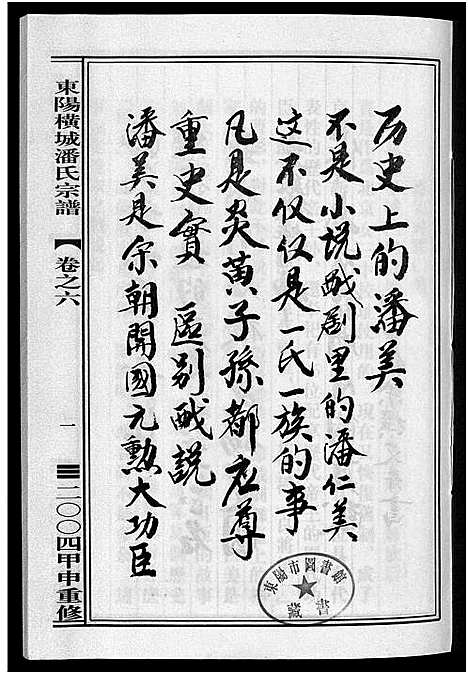 历史上的潘美
不是小说戯剧里的潘仁美
这不仅仅是一氏一族的事
凡是炎黄子孫都应尊
重史實 區别戯説
潘美是宋朝開國元勲大功臣
東陽橫城潘氏宗譜
卷之六
一
二〇〇四甲申重修
東陽市圖書館
藏書